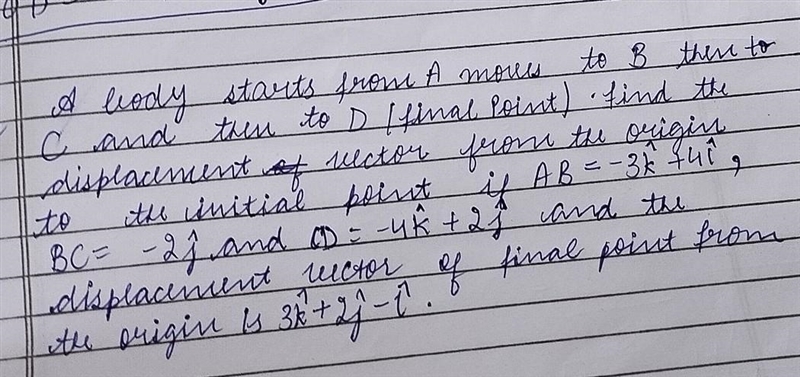 A body starts from A moves to B then to
C and then to D (final Point). find the
displacement of vector from the origin
to the initial point if AB = -3k̂ + 4î,
BC = -2ĵ and CD = -4k̂ + 2ĵ and the
displacement vector of final point from
the origin is 3k̂ + 2ĵ - î.